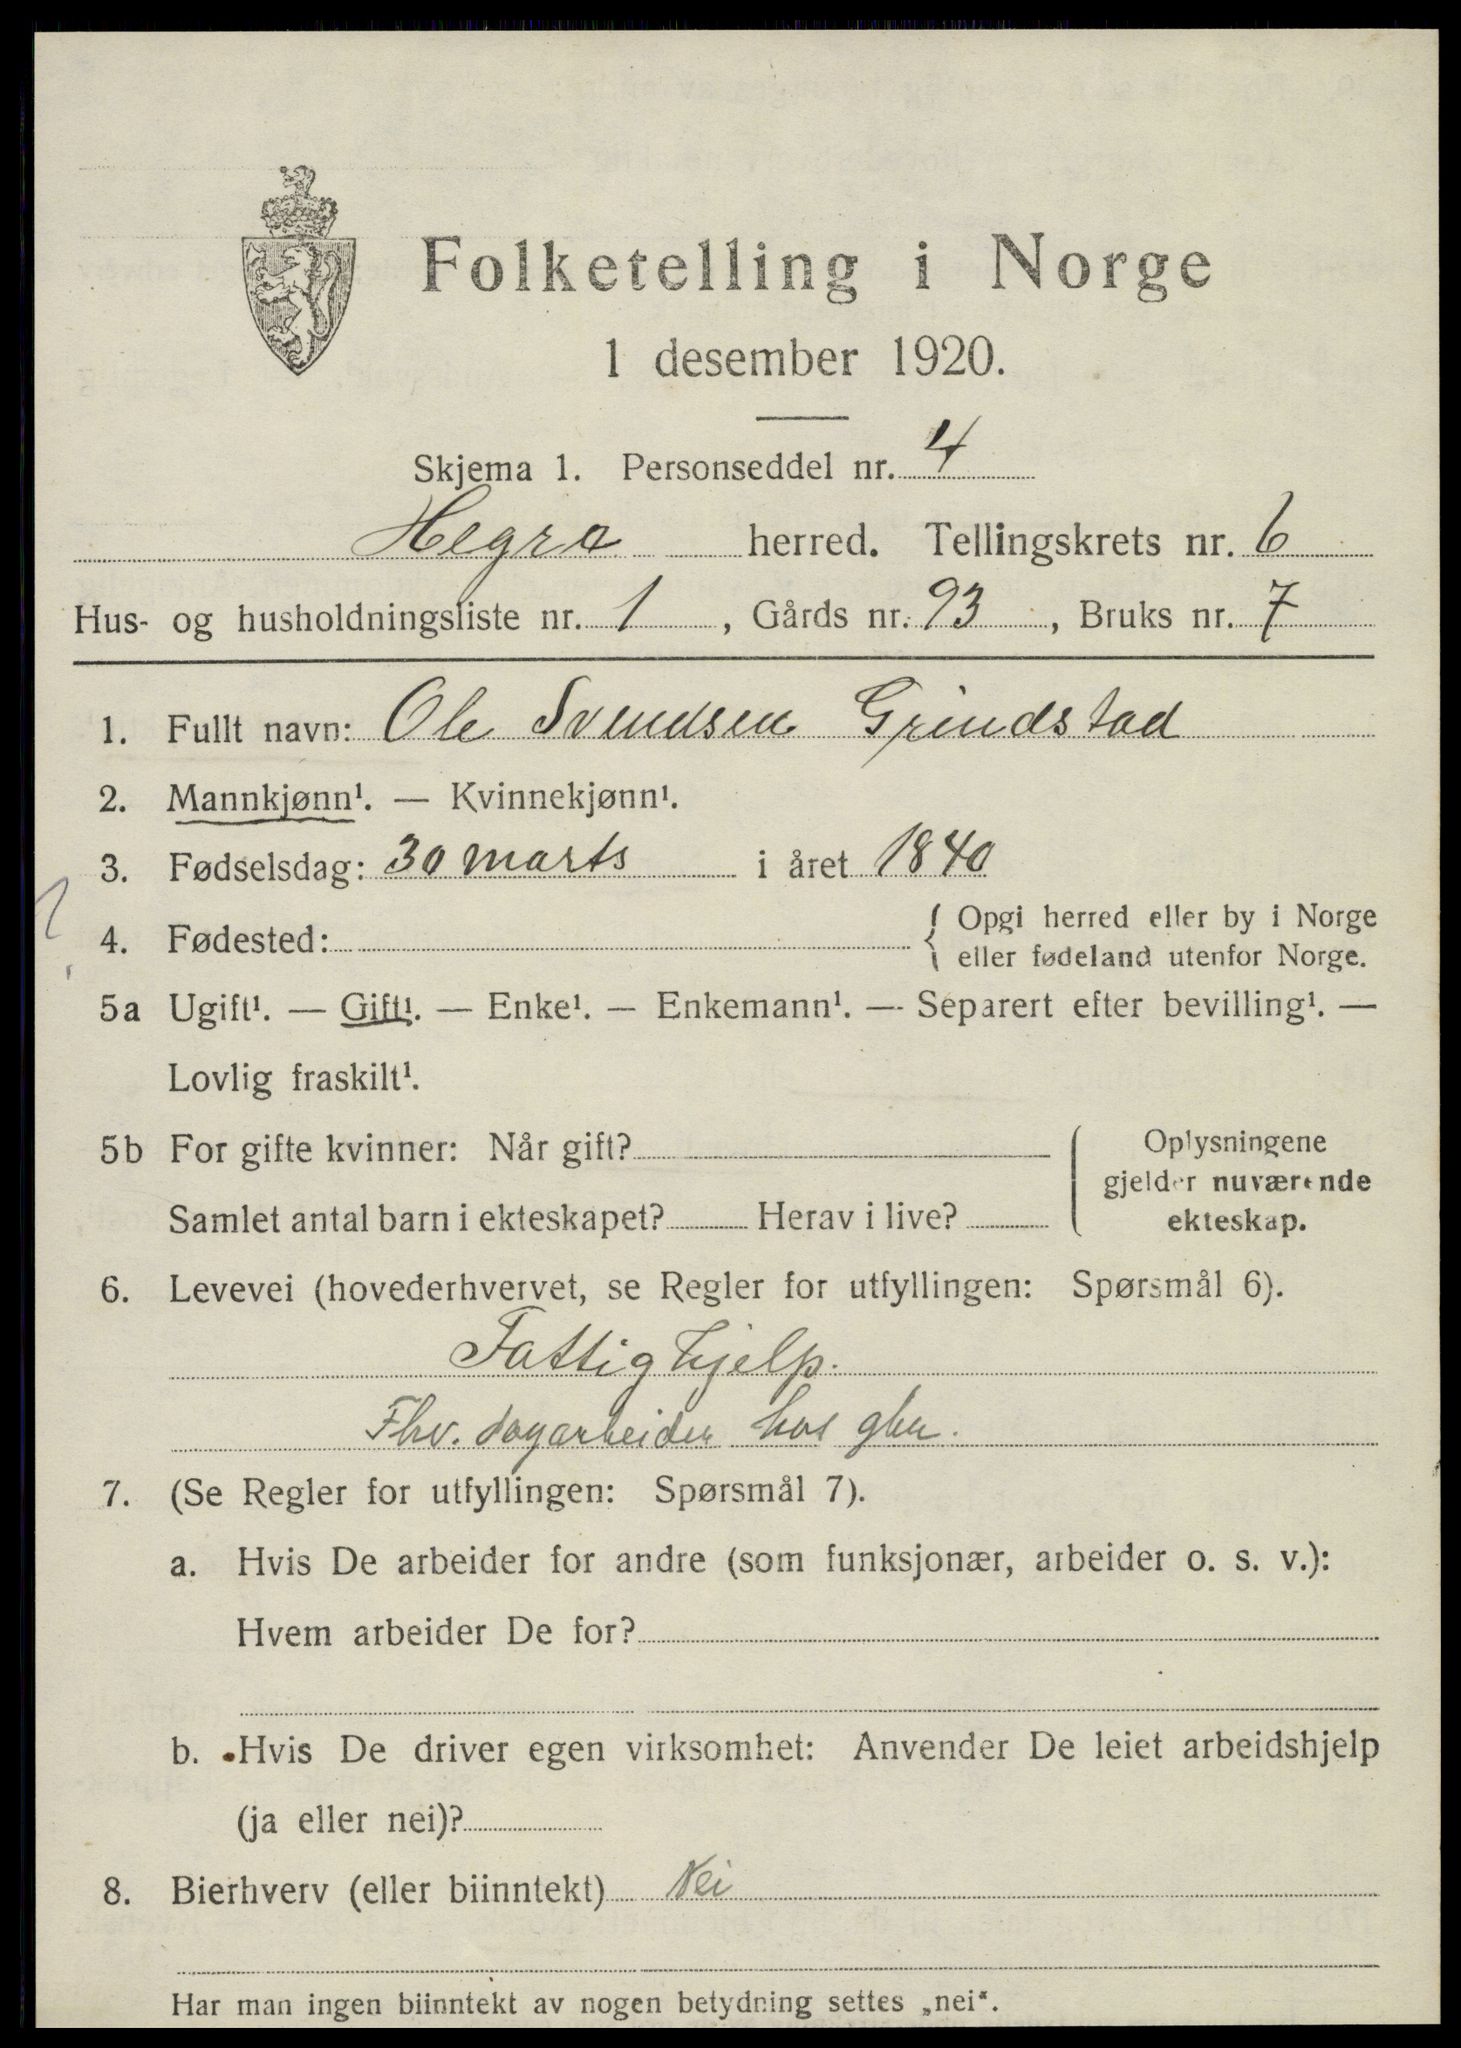 Folketelling i Norge
1 desember 1920.
Skjema 1. Personseddel nr. 4
Hegra herred. Tellingskrets nr. 6
Hus- og husholdningsliste nr. 1, Gårds nr. 93, Bruks nr. 7
1. Fullt navn: Ole Svendsen Grindstad
2. Mannkjønn¹. — Kvinnekjønn¹.
3. Fødselsdag: 30 marts i året 1840
?
4. Fødested: { Opgi herred eller by i Norge
eller fødeland utenfor Norge.
5a Ugift¹. — Gift¹. — Enke¹. — Enkemann¹. — Separert efter bevilling¹. —
Lovlig fraskilt¹.
5b For gifte kvinner: Når gift? Oplysningene
gjelder nuværende
Samlet antal barn i ekteskapet? Herav i live? ekteskap.
6. Levevei (hovederhvervet, se Regler for utfyllingen: Spørsmål 6).
Fattighjelp.
Fhv. dagarbeider hos gbr.
7. (Se Regler for utfyllingen: Spørsmål 7).
a. Hvis De arbeider for andre (som funksjonær, arbeider o. s. v.):
Hvem arbeider De for?
b. Hvis De driver egen virksomhet: Anvender De leiet arbeidshjelp
(ja eller nei)?
8. Bierhverv (eller biinntekt) Nei
Har man ingen biinntekt av nogen betydning settes „nei“.